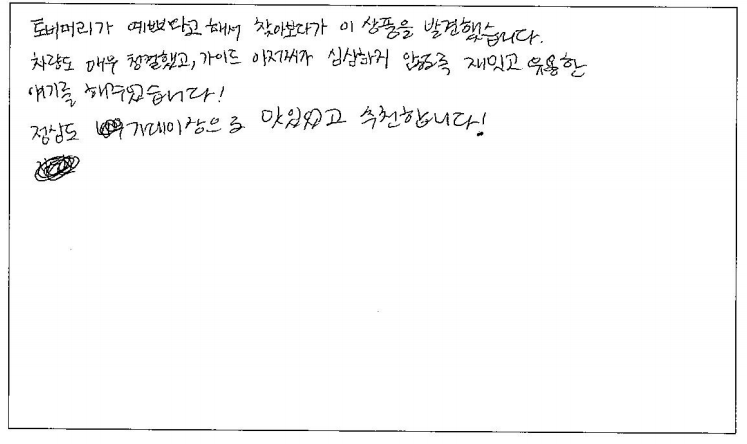 토버머리가 예쁘다고 해서 찾아보다가 이 상품을 발견했습니다.
차량도 매우 청결했고, 가이드 아저씨가 심심하지 않도록 재밌고 유용한
얘기를 해주었습니다!
점심도 기대이상으로 맛있었고 추천합니다!